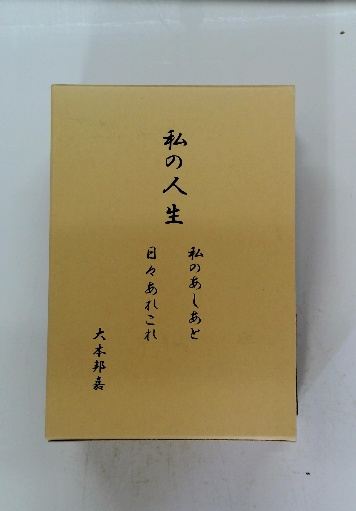 私の人生
私のあしあと
日々あれこれ
大本邦嘉